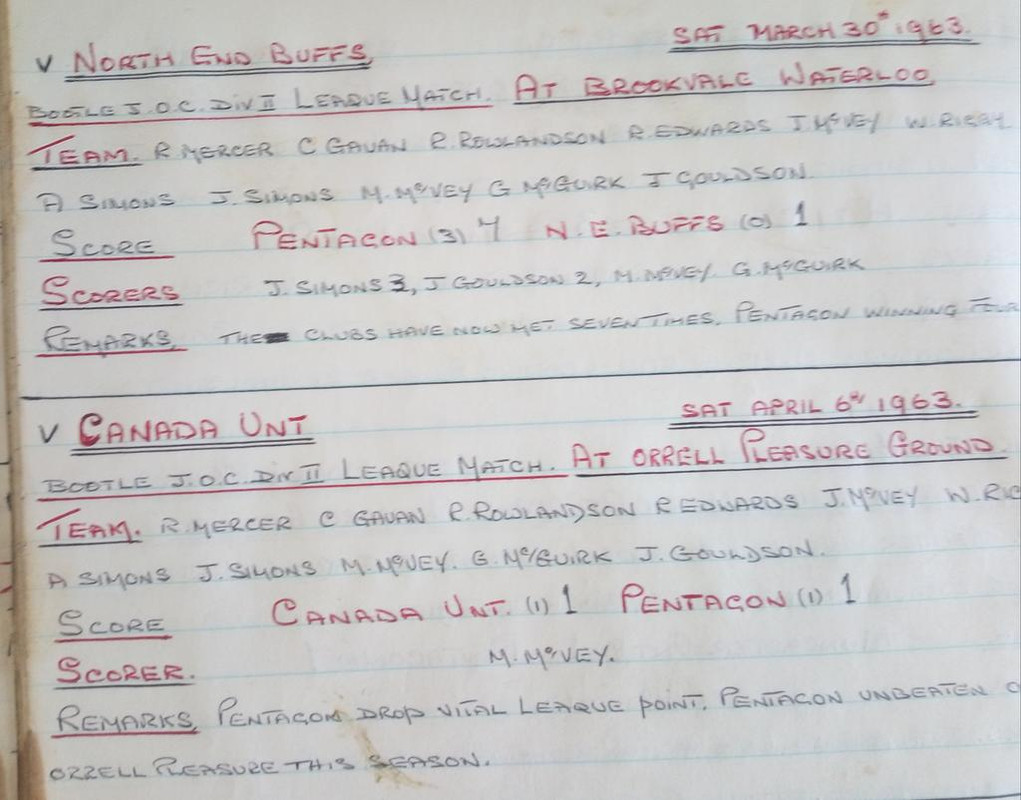 V NORTH END BUFFS, SAT MARCH 30th 1963.
BOOTLE J.O.C. DIV II LEAGUE MATCH. AT BROOKVALE WATERLOO,
TEAM. R MERCER C GAVAN R.ROWLANDSON R.EDWARDS J.McVEY W.RIGBY
A SIMONS J.SIMONS M.McVEY G McGUIRK J GOULDSON.
SCORE PENTAGON (3) 7 N.E.BUFFS (0) 1
SCORERS J.SIMONS 3, J GOULDSON 2, M.McVEY. G.McGUIRK
REMARKS, THE CLUBS HAVE NOW MET SEVEN TIMES, PENTAGON WINNING FOUR
V CANADA UNT SAT APRIL 6th 1963.
BOOTLE J.O.C. DIV II LEAGUE MATCH. AT ORRELL PLEASURE GROUND.
TEAM. R.MERCER C GAVAN R.ROWLANDSON R EDWARDS J.McVEY W.RIG
A SIMONS J.SIMONS M.McVEY. G.McGUIRK J.GOULDSON.
SCORE CANADA UNT. (1) 1 PENTAGON (1) 1
SCORER. M.McVEY.
REMARKS, PENTAGON DROP VITAL LEAGUE POINT. PENTAGON UNBEATEN O
ORRELL PLEASURE THIS SEASON.